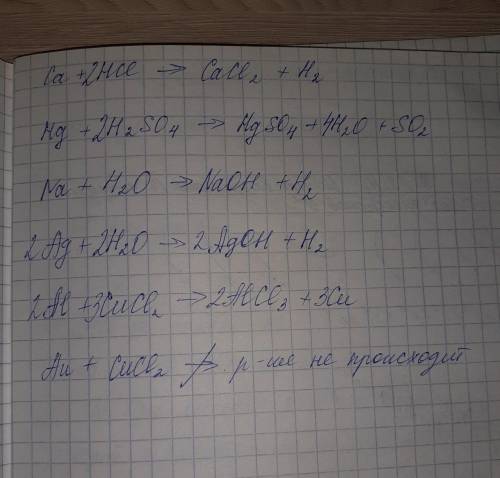 Ca + 2HCl → CaCl₂ + H₂
Hg + 2H₂SO₄ → HgSO₄ + 4H₂O + SO₂
Na + H₂O → NaOH + H₂
2Ag + 2H₂O → 2AgOH + H₂
2Al + 3CuCl₂ → 2AlCl₃ + 3Cu
Au + CuCl₂ ↛ р-ние не происходит